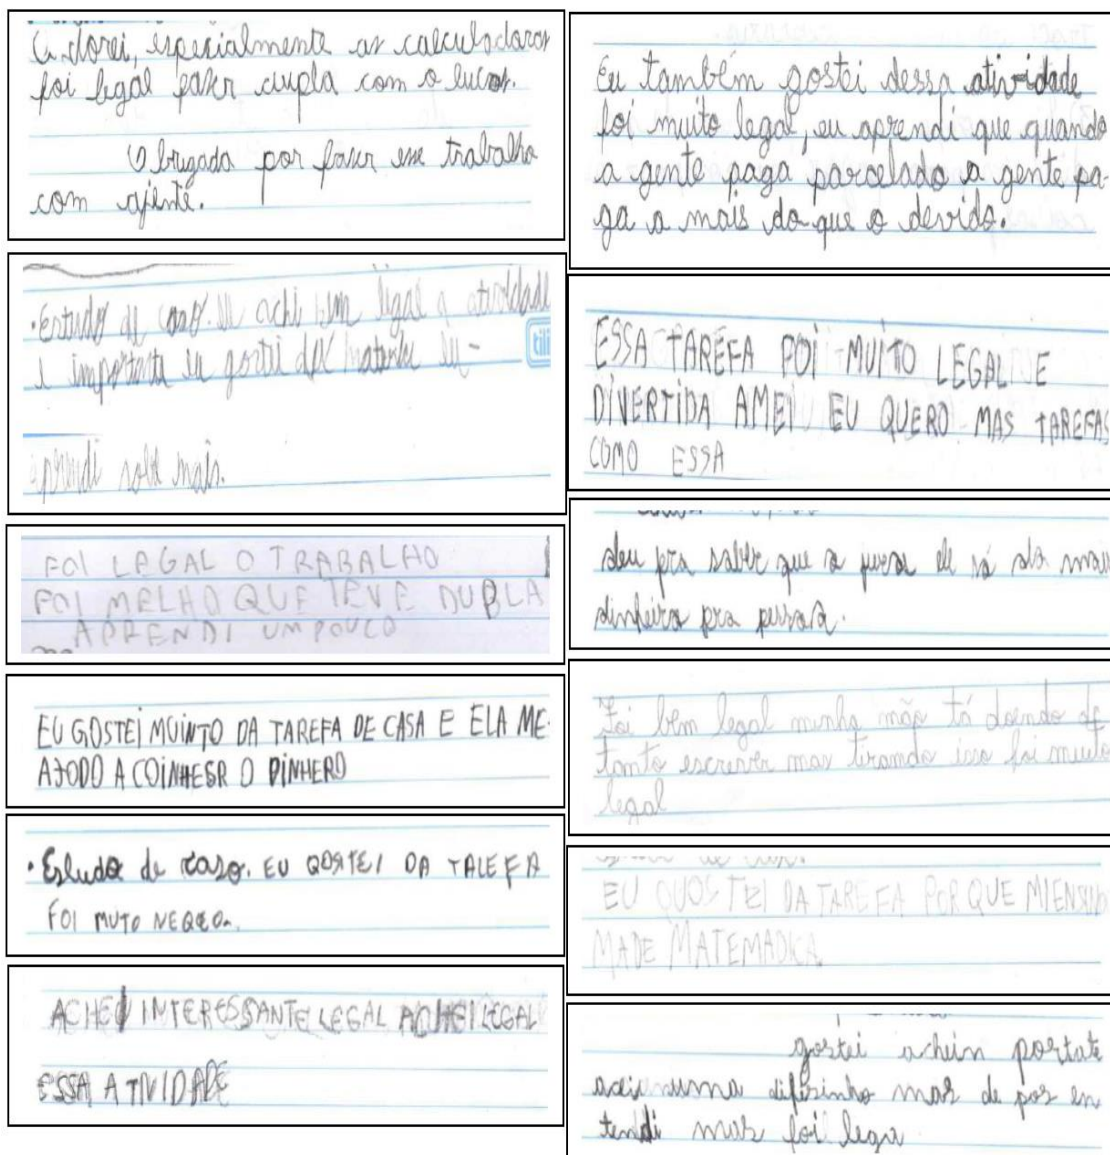 Adorei, especialmente as calculadoras
foi legal fazer dupla com o lucas.
Obrigada por fazer esse trabalho
com ajente.
• Estudo de caso. Eu achi bem ligal a atividade
e importante eu gostei dos materias eu-
aprendi sobre mais.
FOI LEGAL O TRABALHO
FOI MELHO QUE TEVE DUBLA
APRENDI UM POUCO
EU GOSTEI MUINTO DA TAREFA DE CASA E ELA ME
AJODO A COINHESR O DINHERO
• Esludo de caso. EU GOSTEI DA TALEFA
FOI MUTO
ACHEI INTERESSANTE LEGAL ACHEI LEGAL
ESSA ATIVIDADE
Eu também gostei dessa atividade
foi muito legal, eu aprendi que quando
a gente paga parcelado a gente pa-
ga a mais do que o devido.
ESSA TAREFA FOI MUITO LEGAL E
DIVERTIDA AMEI EU QUERO MAS TAREFAS
COMO ESSA
deu pra saber que o juros ele só da mais
dinheiro pra pessoa.
Foi bem legal minha mão tá doendo de
tanto escrever mas tirando isso foi muito
legal
EU QUOSTEI DA TAREFA PORQUE MIENSINO
MADE MATEMADICA
gostei achein portate
numa difisinho mas de pos en
tendi mas foi lega